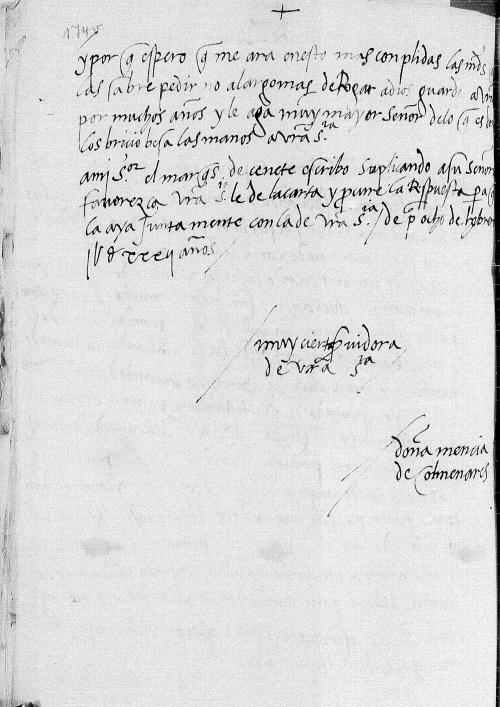 y por q espero q me ara en esto mas conplidas las mrds
las sabre pedir no alargo mas de Rogar a dios guarde a vra
por muchos años y le aga muy mayor señor delo q es
los bricio besa las manos a vra sia
a mi sor el marqs de cenete escribo suplicando a su señor
faborezca vra sia le de la carta y procure la Respuesta
la aya juntamente con la de vra sia / de ocho de hebrer
años
muy cierta servidora
de vra sia
doña mencia
de Colmenares